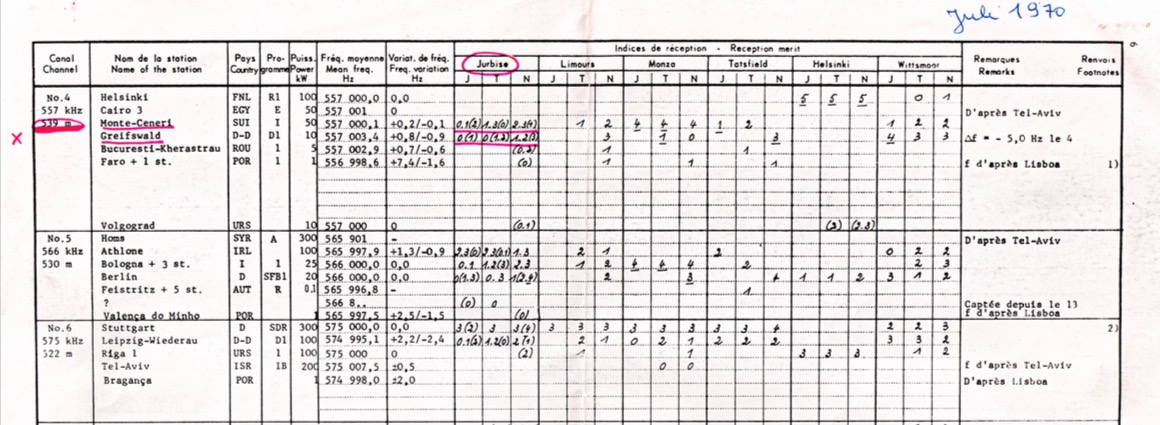 Juli 1970
6
Indices de réception - Reception merit
Canal Channel | Nom de la station Name of the station | Pays Country | Programme | Puiss. Power kW | Fréq. moyenne Mean freq. Hz | Variat. de fréq. Freq. variation Hz | Jurbise | Limours | Monza | Tatsfield | Helsinki | Wittsmoor | Remarques Remarks | Renvois Footnotes
J T N | J T N | J T N | J T N | J T N | J T N
No.4 Helsinki FNL R1 100 557 000,0 0,0 5 5 5 0 1
557 kHz Cairo 3 EGY E 50 557 001 0 D'après Tel-Aviv
539 m Monte-Ceneri SUI I 50 557 000,1 +0,2/-0,1 0.1(2) 1.3(0) 2.3(1) 1 2 4 4 4 1 2 1 2 2
x Greifswald D-D D1 10 557 003,4 +0,8/-0,9 0(1) 0(1.2) 3 1 0 3 4 3 3 Δf = - 5,0 Hz le 4
Bucuresti-Kherastrau ROU 1 5 557 002,9 +0,7/-0,6 1 1
Faro + 1 st. POR 1 1 556 998,6 +7,4/-1,6 (0) 1 1 1 f d'après Lisboa 1)
Volgograd URS 10 557 000 0 (0.1) (2) (2.3)
No.5 Homs SYR A 300 565 901 - D'après Tel-Aviv
566 kHz Athlone IRL 100 565 997,9 +1,3/-0,9 2.3(0) 2.3(0.1) 1.3 2 1 2 0 2 2
530 m Bologna + 3 st. I 1 25 566 000,0 0,0 0.1 1.2(3) 2.3 1 2 4 4 4 2 2 3
Berlin D SFB1 20 566 000,0 0,0 0(1.3) 0.3 2 3 4 1 1 2 3 1 2
Feistritz + 5 st. AUT R 0,1 565 996,8 - 1
? 566 8.. (0) 0 Captée depuis le 13
Valença do Minho POR 1 565 997,5 +2,5/-1,5 (0) f d'après Lisboa
No.6 Stuttgart D SDR 300 575 000,0 0,0 3(2) 3 3(4) 3 3 3 3 3 3 3 3 4 2 2 3 2)
575 kHz Leipzig-Wiederau D-D D1 100 574 995,1 +2,2/-2,4 1.2(0) 2(1) 2 1 0 2 1 2 2 2 3 3 2
522 m Riga 1 URS 1 100 575 000 0 (2) 1 1 3 3 3 1 2
Tel-Aviv ISR IB 200 575 007,5 ±0,5 0 0 f d'après Tel-Aviv
Bragança POR 1 574 998,0 ±2,0 D'après Lisboa